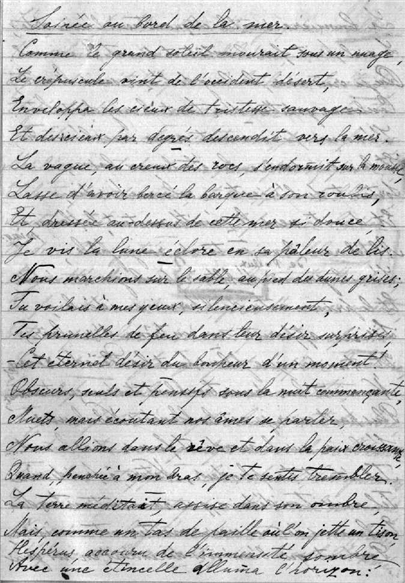 Soirée au bord de la mer.
Comme le grand soleil mourait sous un nuage,
Le crépuscule vint de l'occident désert,
Enveloppa les cieux de tristesse sauvage
Et des cieux par degrés descendit vers la mer.
La vague, au creux des rocs, s'endormit sur la mousse,
Lasse d'avoir bercé la barque à son roulis,
Et, dressée au-dessus de cette mer si douce,
Je vis la lune éclore en sa pâleur de lis.
Nous marchions sur le sable, au pied des dunes grises;
Tu voilais à mes yeux, silencieusement,
Tes prunelles de feu dans leur désir surprises
- Cet éternel désir du bonheur d'un moment!
Obscurs, seuls et pensifs sous la nuit commençante,
Muets, mais écoutant nos âmes se parler,
Nous allions dans le rêve et dans la paix croissante,
Quand, penchée à mon bras, je te sentis trembler.
La terre méditait, assise dans son ombre,
Mais, comme un tas de paille où l'on jette un tison
Hespérus accouru de l'immensité sombre
Avec une étincelle alluma l'horizon!